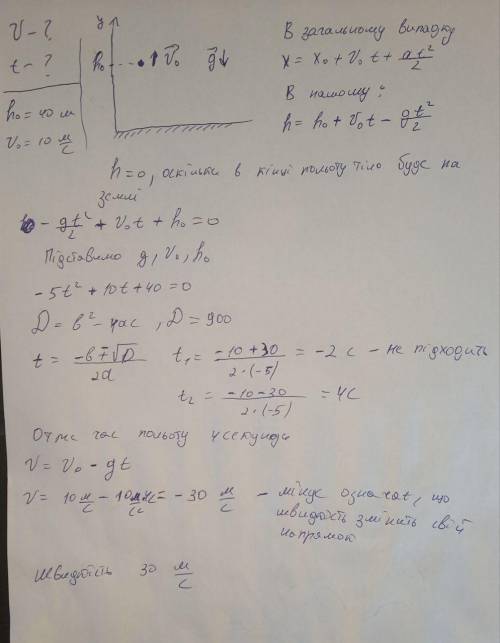 V - ?
t - ?
h₀ = 40 м
v₀ = 10 м/с
y
h₀
v⃗₀
g⃗↓
В загальному випадку
x = x₀ + v₀t + at²/2
В нашому:
h = h₀ + v₀t - gt²/2
h = 0, оскільки в кінці польоту тіло буде на
землі
- gt²/2 + v₀t + h₀ = 0
Підставимо g, v₀, h₀
-5t² + 10t + 40 = 0
D = b² - 4ac, D = 900
t = (-b ∓ √D)/2a t₁ = (-10 + 30)/(2·(-5)) = -2 с - не підходить
t₂ = (-10 - 30)/(2·(-5)) = 4с
Отже час польоту 4 секунди
V = v₀ - gt
V = 10 м/с - 10 м·4с/с² = -30 м/с - мінус означає, що
швидкість змінить свій
напрямок
Швидкість 30 м/с